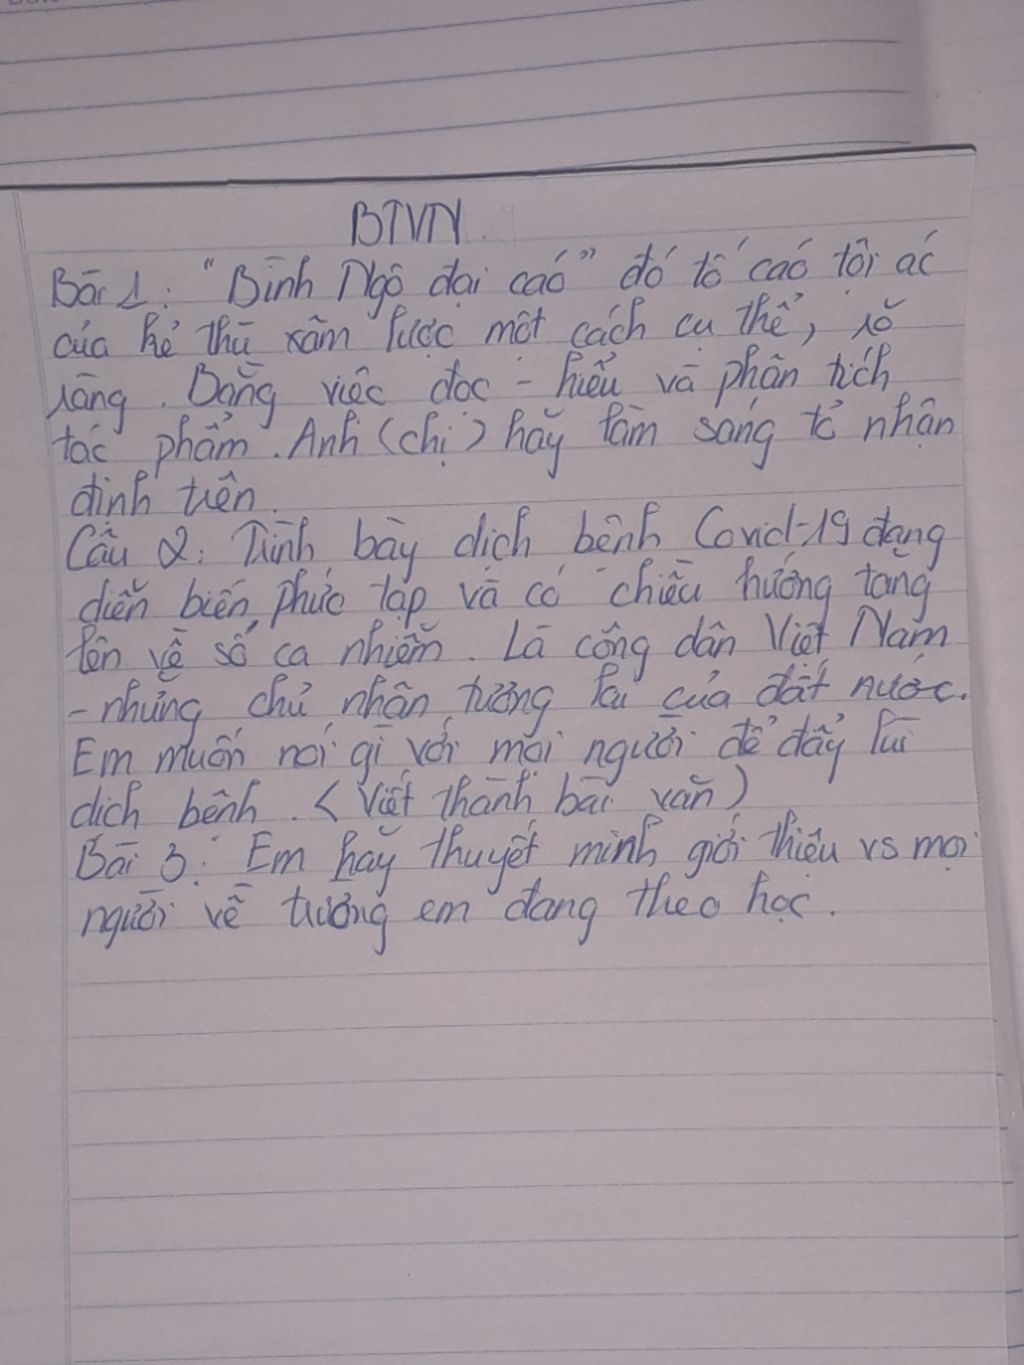 BTVN.
Bài 1: "Bình Ngô đại cáo" đó tố cáo tội ác
của kẻ thù xâm lược một cách cụ thể, rõ
ràng. Bằng việc đọc - hiểu và phân tích
tác phẩm. Anh (chị) hãy làm sáng tỏ nhận
định trên.
Câu 2: Trình bày dịch bệnh Covid-19 đang
diễn biến phức tạp và có chiều hướng tăng
lên về số ca nhiễm. Là công dân Việt Nam
- những chủ nhân tương lai của đất nước.
Em muốn nói gì với mọi người để đẩy lùi
dịch bệnh. (Viết thành bài văn)
Bài 3: Em hãy thuyết minh giới thiệu vs mọi
người về trường em đang theo học.